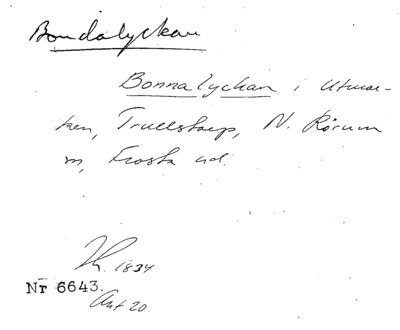 Bondalyckan
Bonnalyckan i Utmar-
ken, Trullstorp, N. Rörum
sn, Frosta hd.
1834
Nr 6643.
Akt 20.